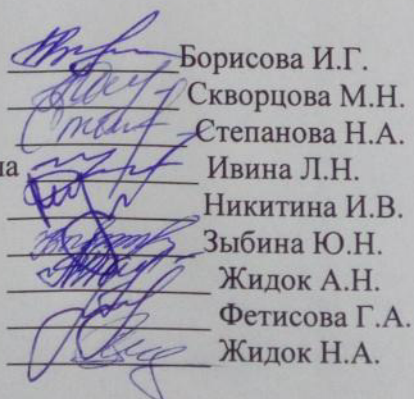 Борисова И.Г.
Скворцова М.Н.
Степанова Н.А.
на Ивина Л.Н.
Никитина И.В.
Зыбина Ю.Н.
Жидок А.Н.
Фетисова Г.А.
Жидок Н.А.